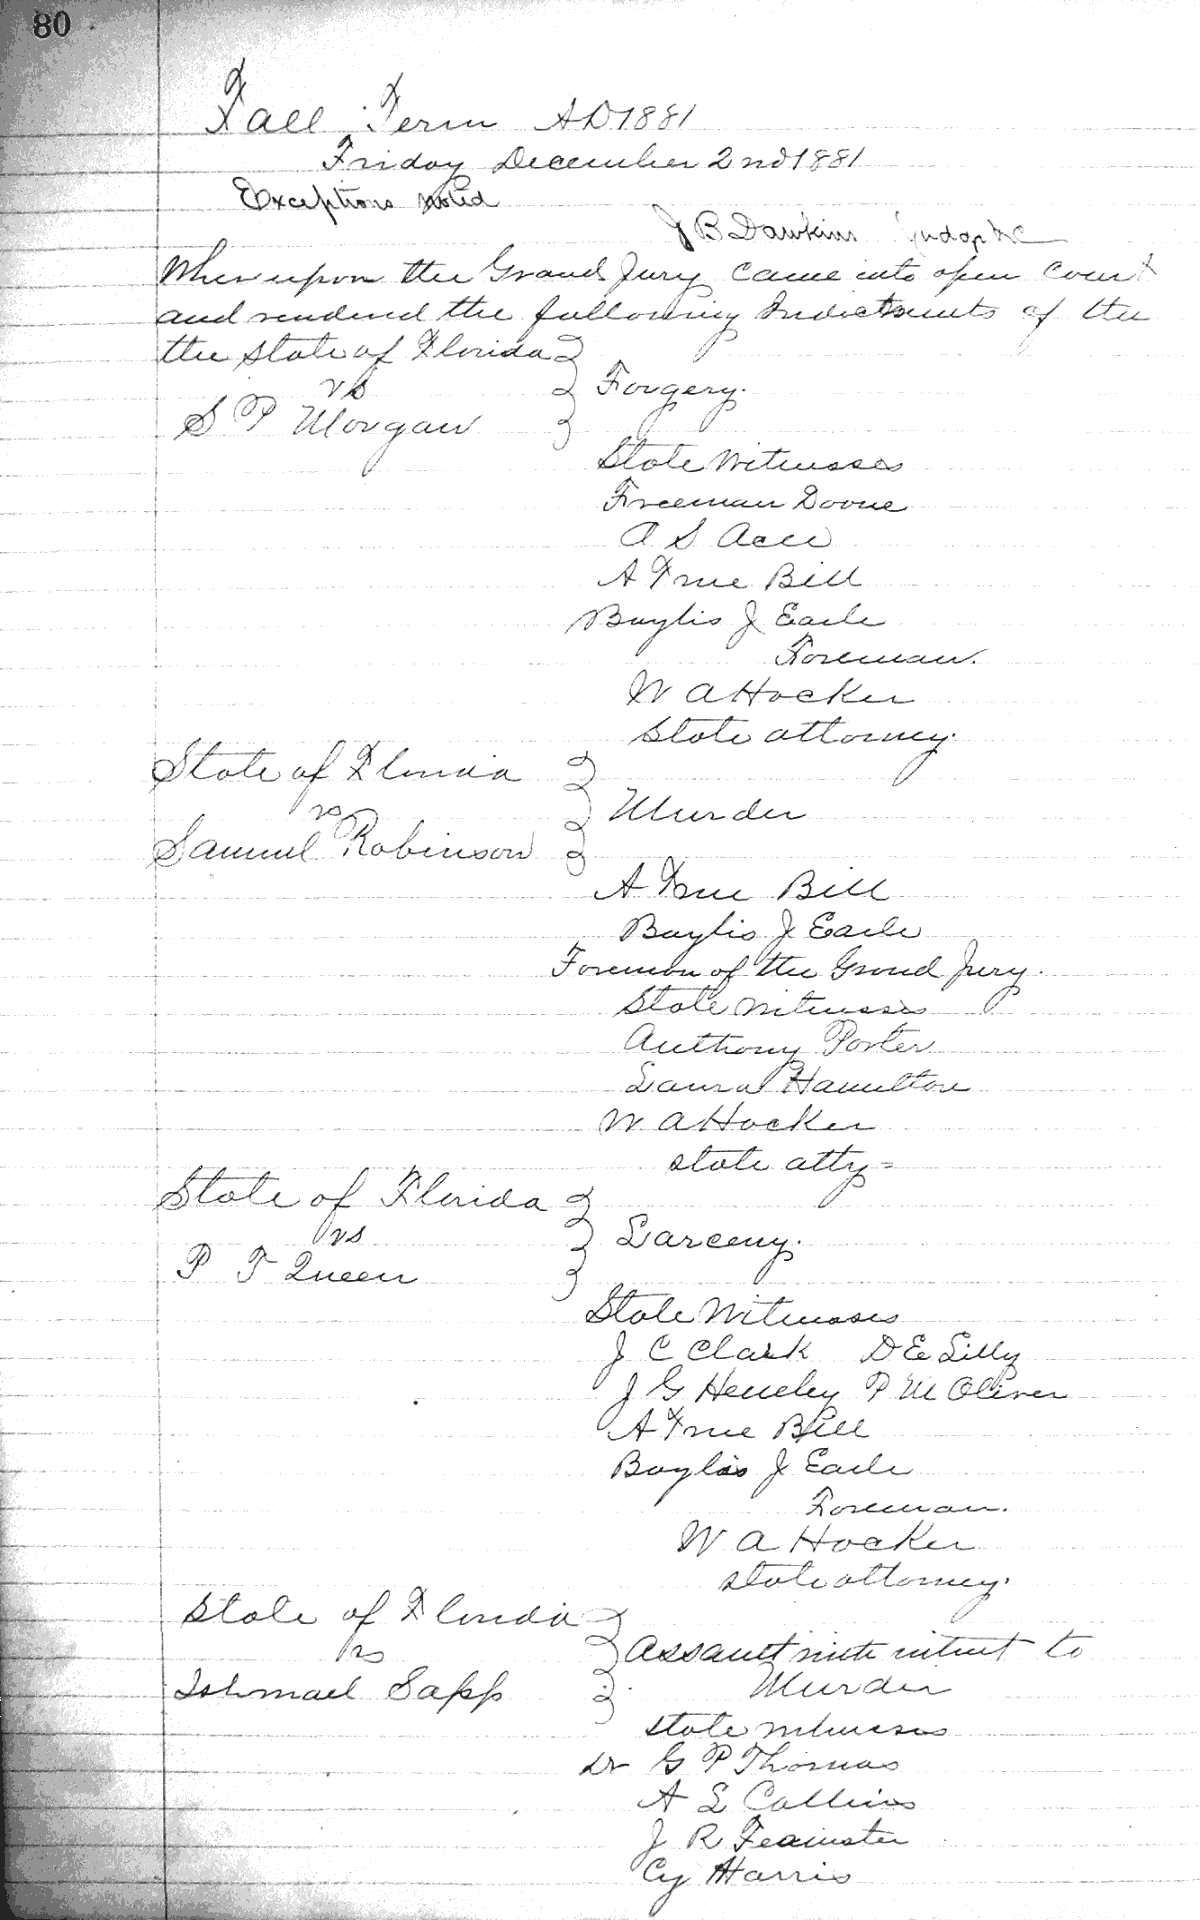 80
Fall Term AD 1881
Friday December 2nd 1881
Exceptions noted
J B Dawkins Judge &c
Whereupon the Grand Jury came into open Court
and rendered the following Indictments of the
the State of Florida
vs
Forgery.
S P Morgan
State Witnesses
Freeman Doone
A S
A True Bill
Baylis J Earle
Foreman.
W A Hocker
State attorney.
State of Florida
vs
Murder
Samuel Robinson
A True Bill
Baylis J Earle
Foreman of the Grand Jury.
State Witnesses
Anthony Porter
Laura Hamilton
W A Hocker
state atty=
State of Florida
vs
Larceny.
P F Queen
State Witnesses
J C Clark D E Lilly
J G P M Oliver
A True Bill
Baylis J Earle
Foreman.
W A Hocker
state attorney.
State of Florida
vs
assault with intent to
Ishmael Sapp
Murder
state witnesses
Dr G P Thomas
A L Collins
J R Feaimster
Cy Harris